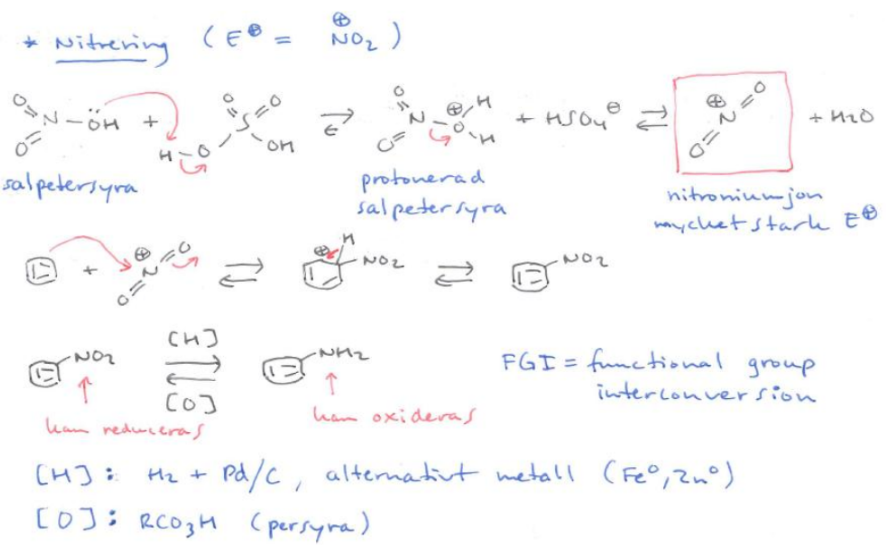 * Nitrering (E⊕ = ⊕NO2)
O=N(=O)-ÖH + H-O-S(=O)(=O)-OH ⇌ O=N(=O)-O⊕(H)-H + HSO4⊖ ⇌ O=N⊕=O + H2O
salpetersyra
protonerad
salpetersyra
nitroniumjon
mycket stark E⊕
+ O=N⊕=O ⇌ ⊕ H NO2 ⇌ NO2
NO2 [H] ⇌ [O] NH2
kan reduceras
kan oxideras
FGI = functional group
interconversion
[H]: H2 + Pd/C, alternativt metall (Fe⁰, Zn⁰)
[O]: RCO3H (persyra)